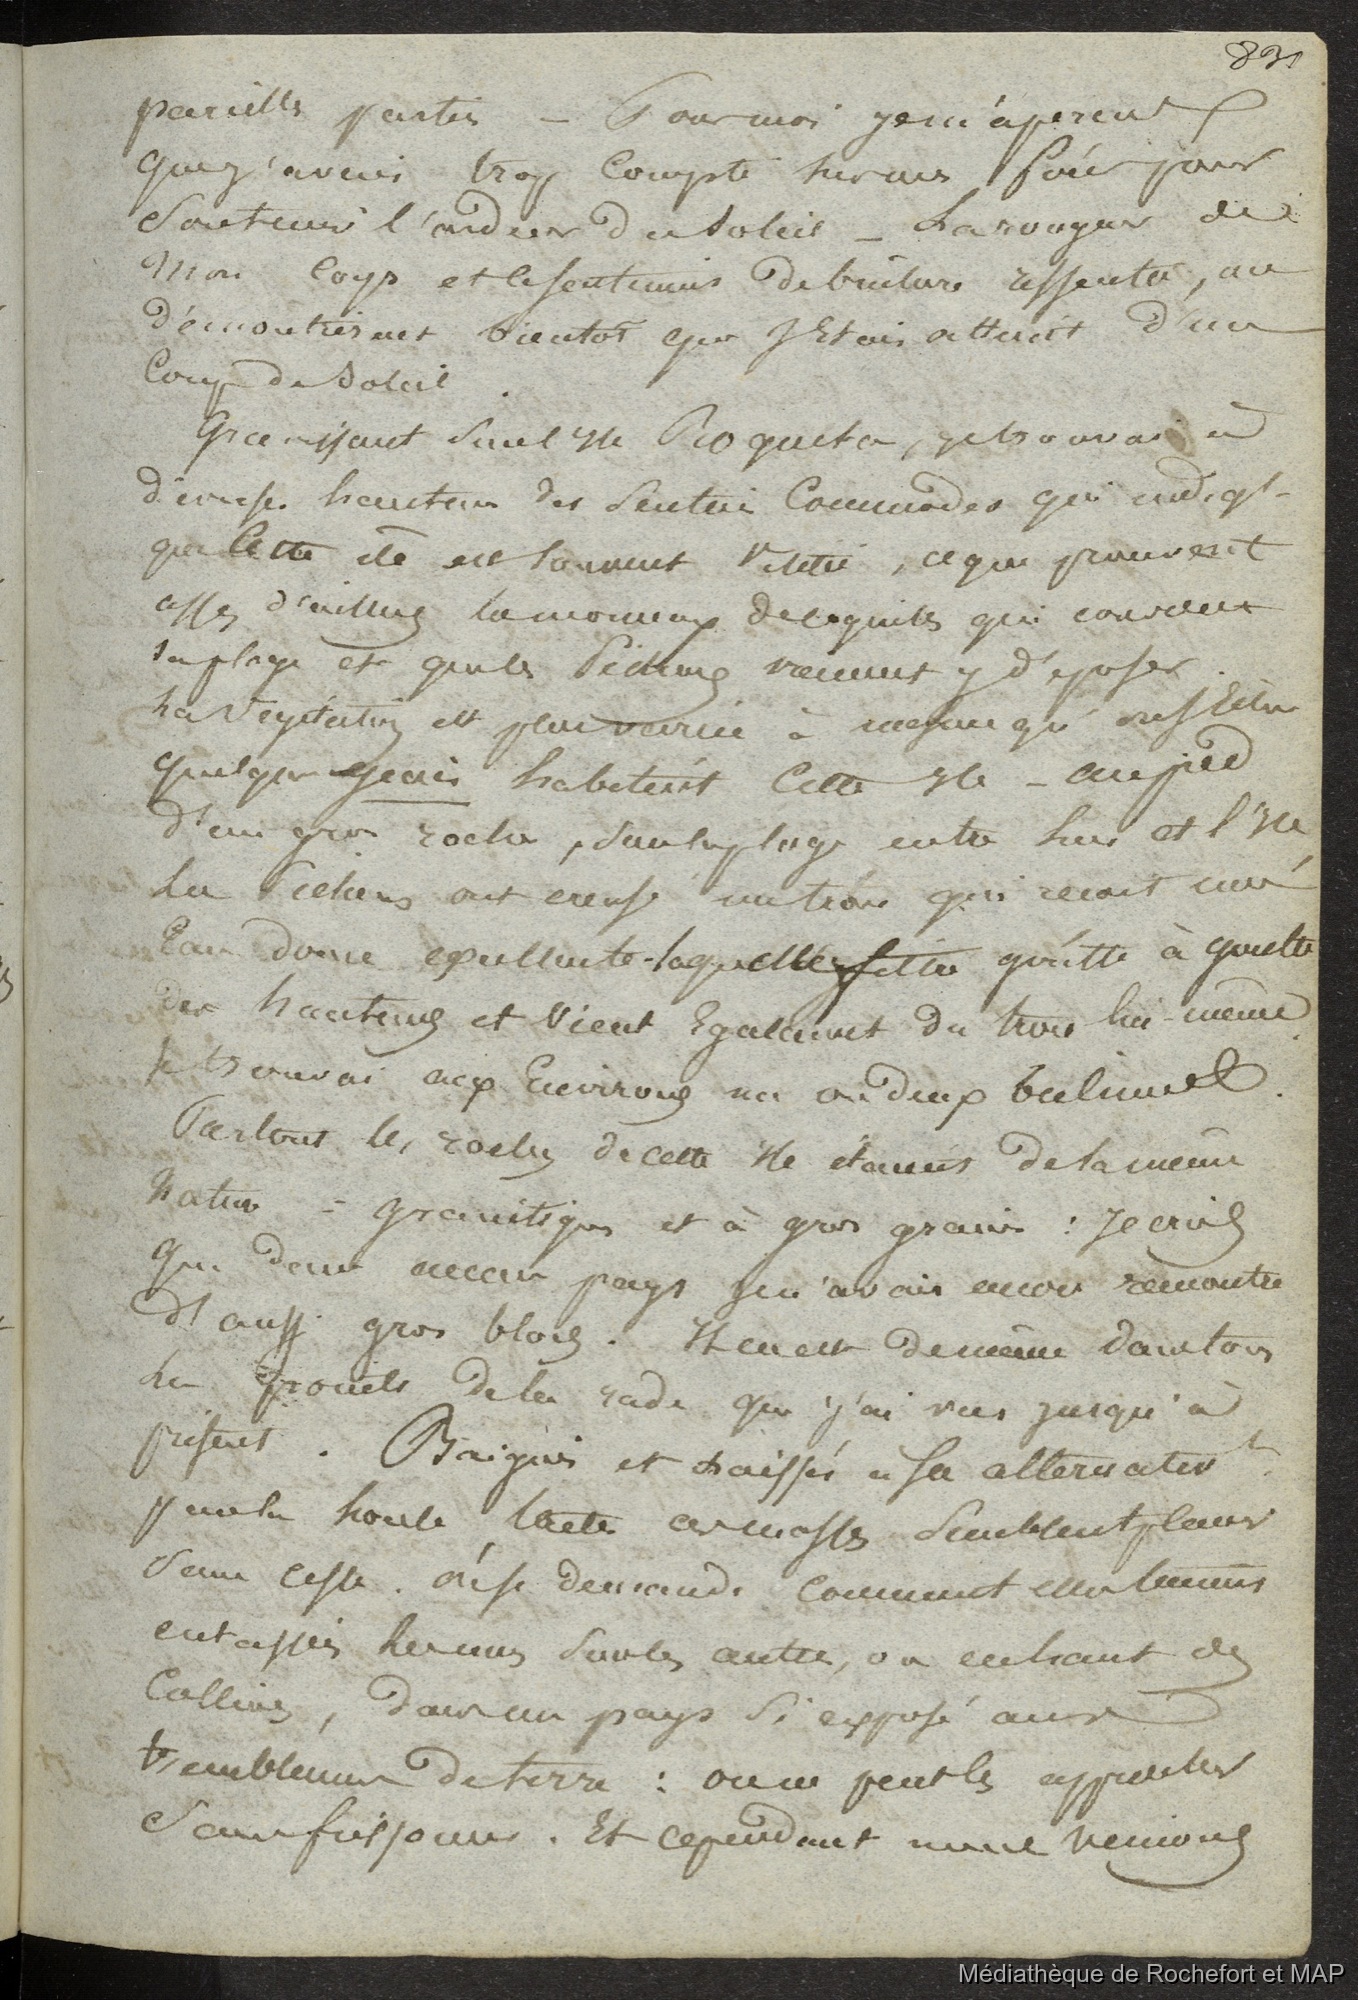 831
pareille partie — Pour moi je m'aperçus
que j'avais trop compté sur mes forces pour
soutenir l'ardeur du soleil — La rougeur de
mon corps et le sentiment de brûlure
démontrèrent bientôt que j'Etais atteint d'un
Coup de Soleil.
Gravissant sur l'Ile Roqueta, je trouvai à
diverses hauteurs des sentiers Commodes qui
que Cette île est souvent visitée, ce que prouvent
assez d'ailleurs de coquilles qui couvrent
sa plage et que les Pécheurs viennent y déposer.
La végétation est peu variée à mesure qu'on s'élève
quelques geais habitent Cette Ile — au pied
d'un gros rocher, sur la plage entre lui et l'Ile,
les Pécheurs ont creusé un trou qui reçoit une
Eau douce excellente laquelle filtre goutte à goutte
des hauteurs et vient Egalement du trou lui-même.
Je trouvai aux Environs un ou deux bulimes.
Partout les roches de cette Ile étaient de la même
nature = granitiques et à gros grains : Je crois
que dans aucun pays je n'avais encore rencontré
d'aussi gros blocs. Il en est de même dans tous
les points de la rade que j'ai vus jusqu'à
présent. Baignés et laissés à sec alternativt
par la houle toutes ces masses semblent pleurer
sans cesse. on se demande comment elles tiennent
entassées les unes sur les autres, ou en haut des
Collines, dans un pays si exposé aux
tremblemens de terre : on ne peut les approcher
sans frissonner. Et cependant nous venions
Médiathèque de Rochefort et MAP